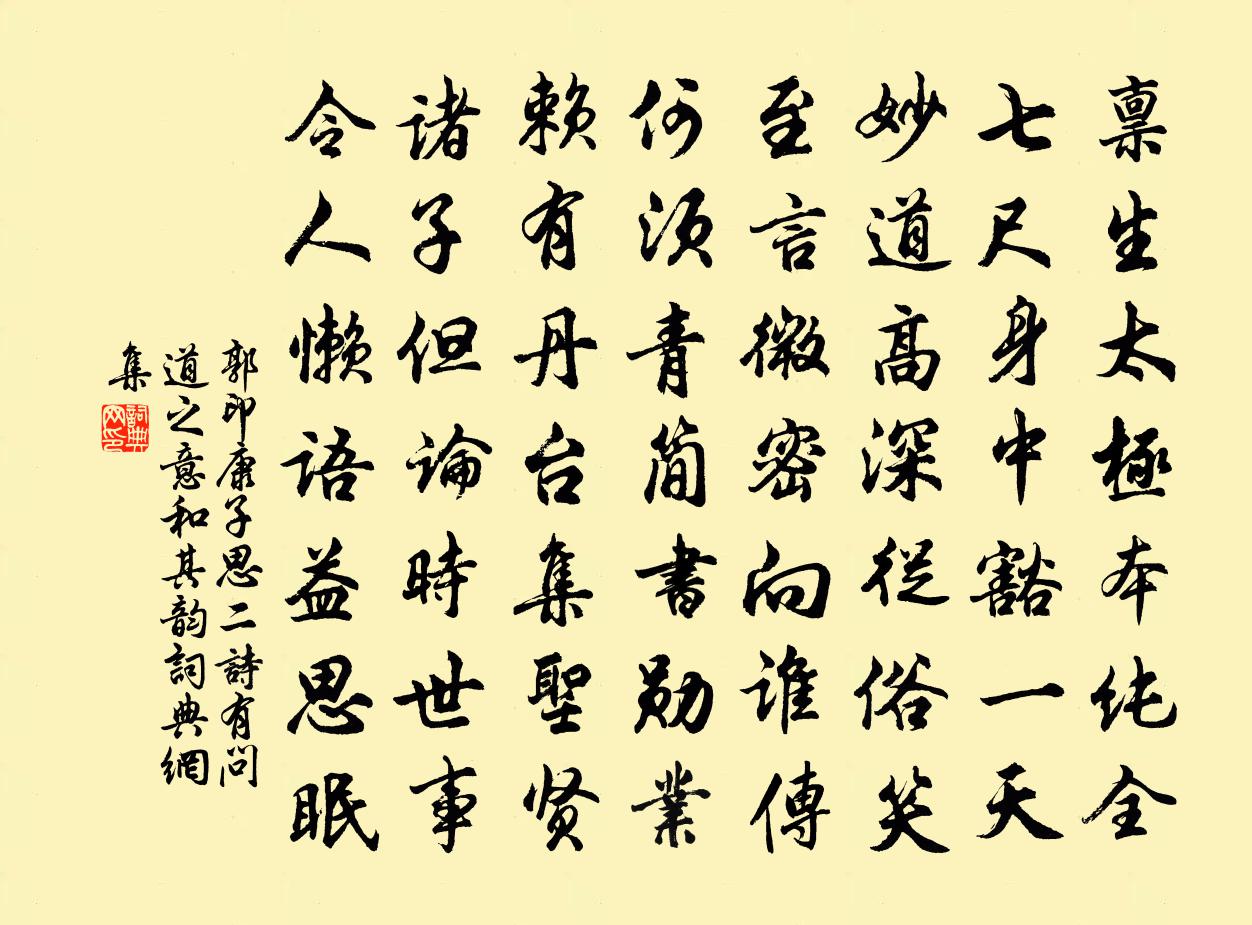 禀生太極本纯全
七尺身中豁一天
妙道高深從俗笑
至言微密向谁傳
何须青简書勋業
赖有丹台集聖贤
诸子但論時世事
令人懒语益思眠
郭印康子思二詩有問
道之意和其韵詞典網
集
詞典网印